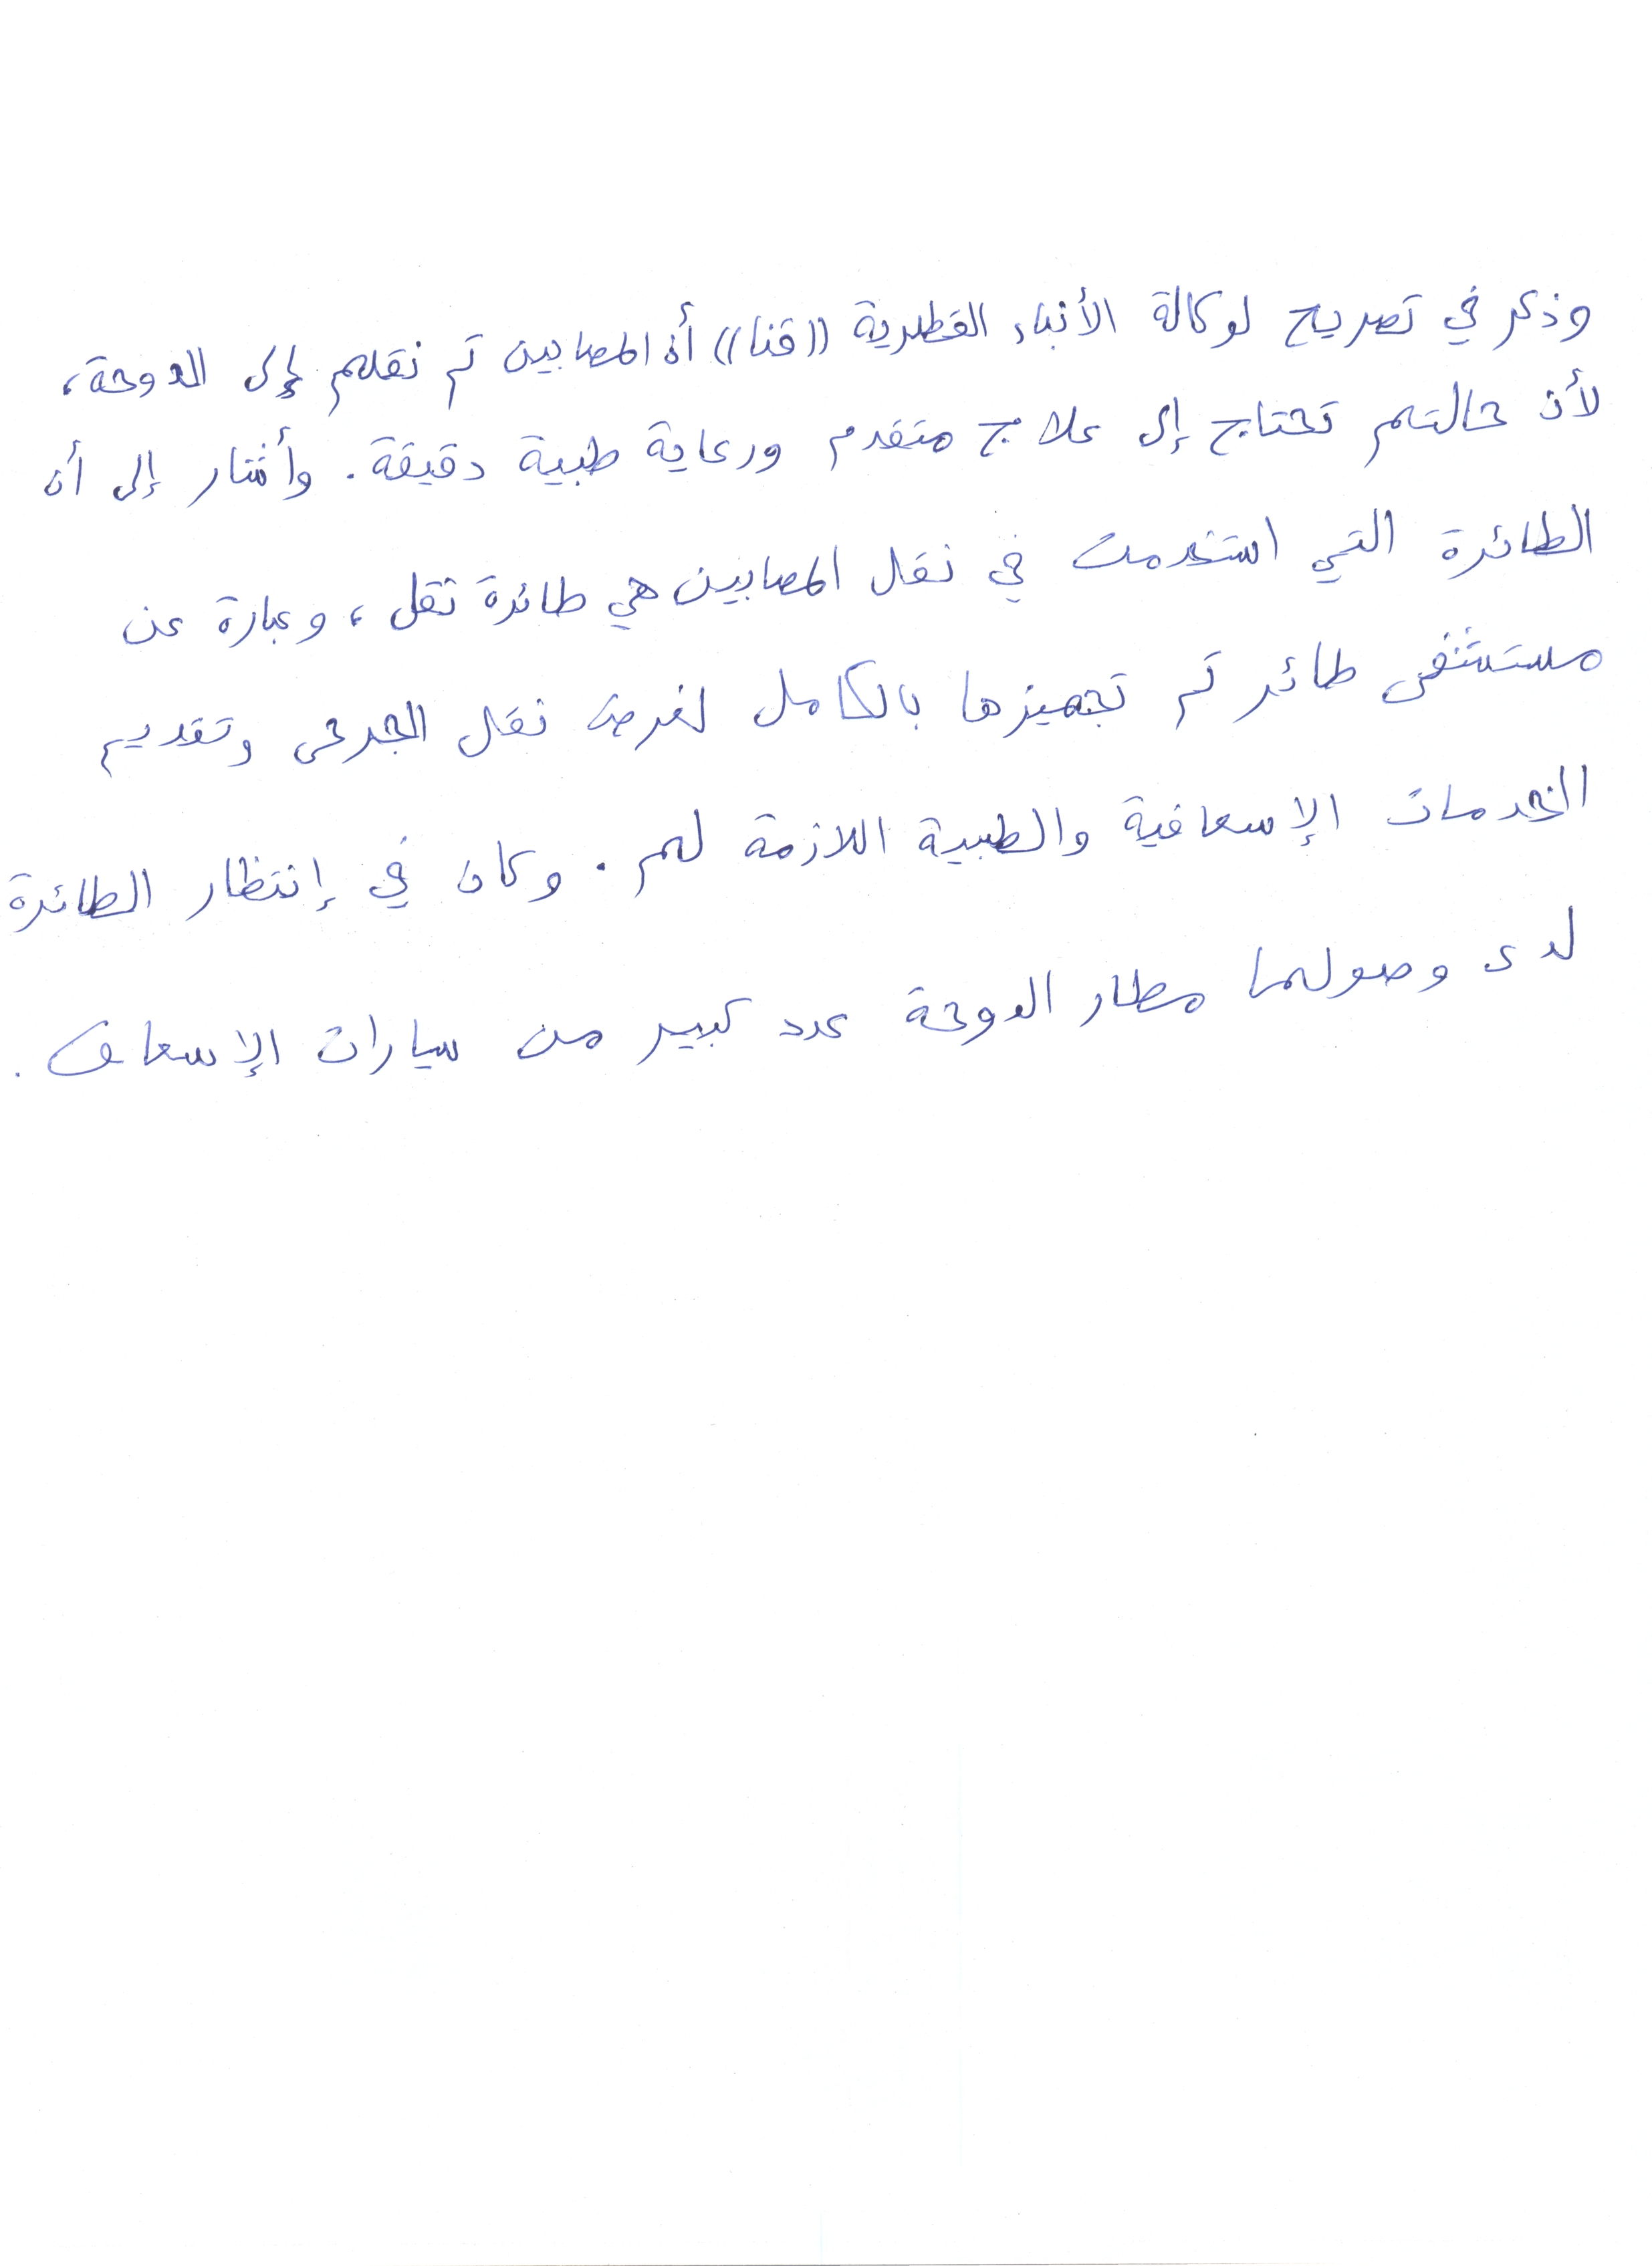 وذكر في تصريح لوكالة الأنباء القطرية ((قنا)) أن المصابين تم نقلهم إلى الدوحة،
لأن حالتهم تحتاج إلى علاج متقدم ورعاية طبية دقيقة. وأشار إلى أن
الطائرة التي استخدمت في نقل المصابين هي طائرة نقل، وعبارة عن
مستشفى طائر تم تجهيزها بالكامل لغرض نقل الجرحى وتقديم
الخدمات الإسعافية والطبية اللازمة لهم. وكان في إنتظار الطائرة
لدى وصولها مطار الدوحة عدد كبير من سيارات الإسعاف.